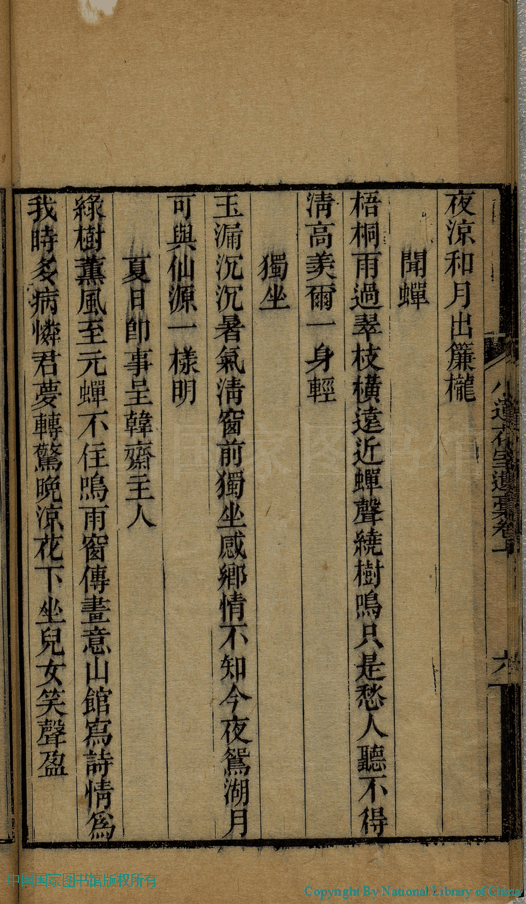 夜涼和月出簾櫳
聞蟬
梧桐雨過翠枝橫遠近蟬聲繞樹鳴只是愁人聽不得
淸高羨爾一身輕
獨坐
玉漏沉沉暑氣淸窗前獨坐感鄉情不知今夜鴛湖月
可與仙源一樣明
夏日卽事呈韓齋主人
綠樹薰風至元蟬不住鳴雨窗傳畫意山館寫詩情爲
我時多病憐君夢轉驚晚涼花下坐兒女笑聲盈
遺稾卷一
六
中国国家图书馆版权所有
Copyright By National Library of China